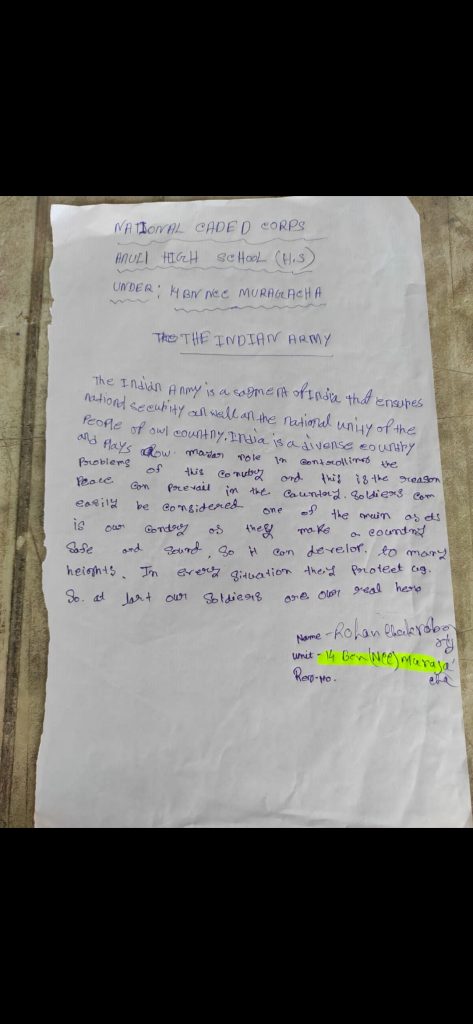 NATIONAL CADED CORPS
ANULI HIGH SCHOOL (H.S)
UNDER: 4 BN NCC MURAGACHA
THE INDIAN ARMY
The Indian Army is a segment of India that ensures
national security as well as the national unity of the
People of our country. India is a diverse country
and Plays major role in controlling the
Problems of this country and this is the reason
Peace can prevail in the country. Soldiers can
easily be considered one of the main
is our as they make a country
Safe and Sound, So it can develop. to many
heights. In every Situation they Protect us.
So. at last our Soldiers are our real hero
Name - Rohan Chakrabor
ty
Unit - 14 Ben (NCC) Muraga
cha